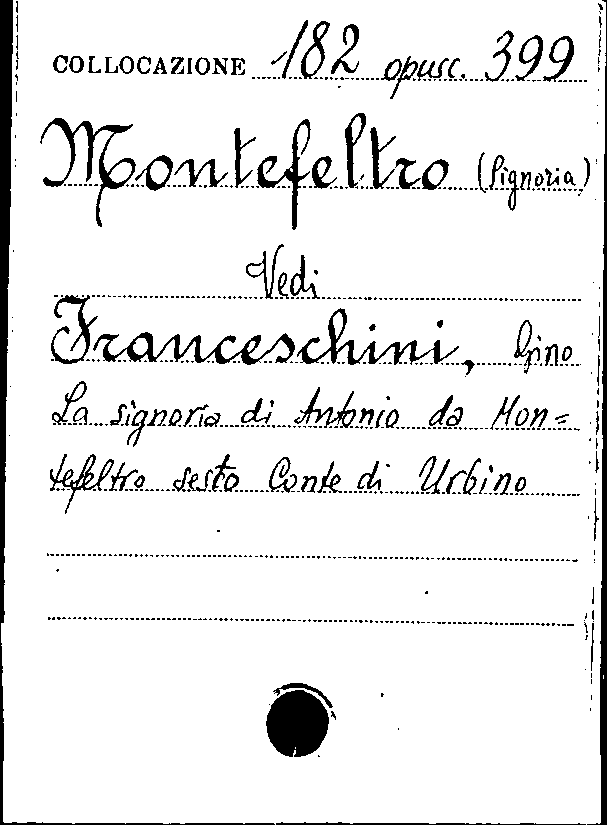 COLLOCAZIONE 182 opusc. 399
Montefeltro (Signoria)
Vedi
Franceschini, Gino
La signoria di Antonio da Mon=
tefeltro sesto Conte di Urbino